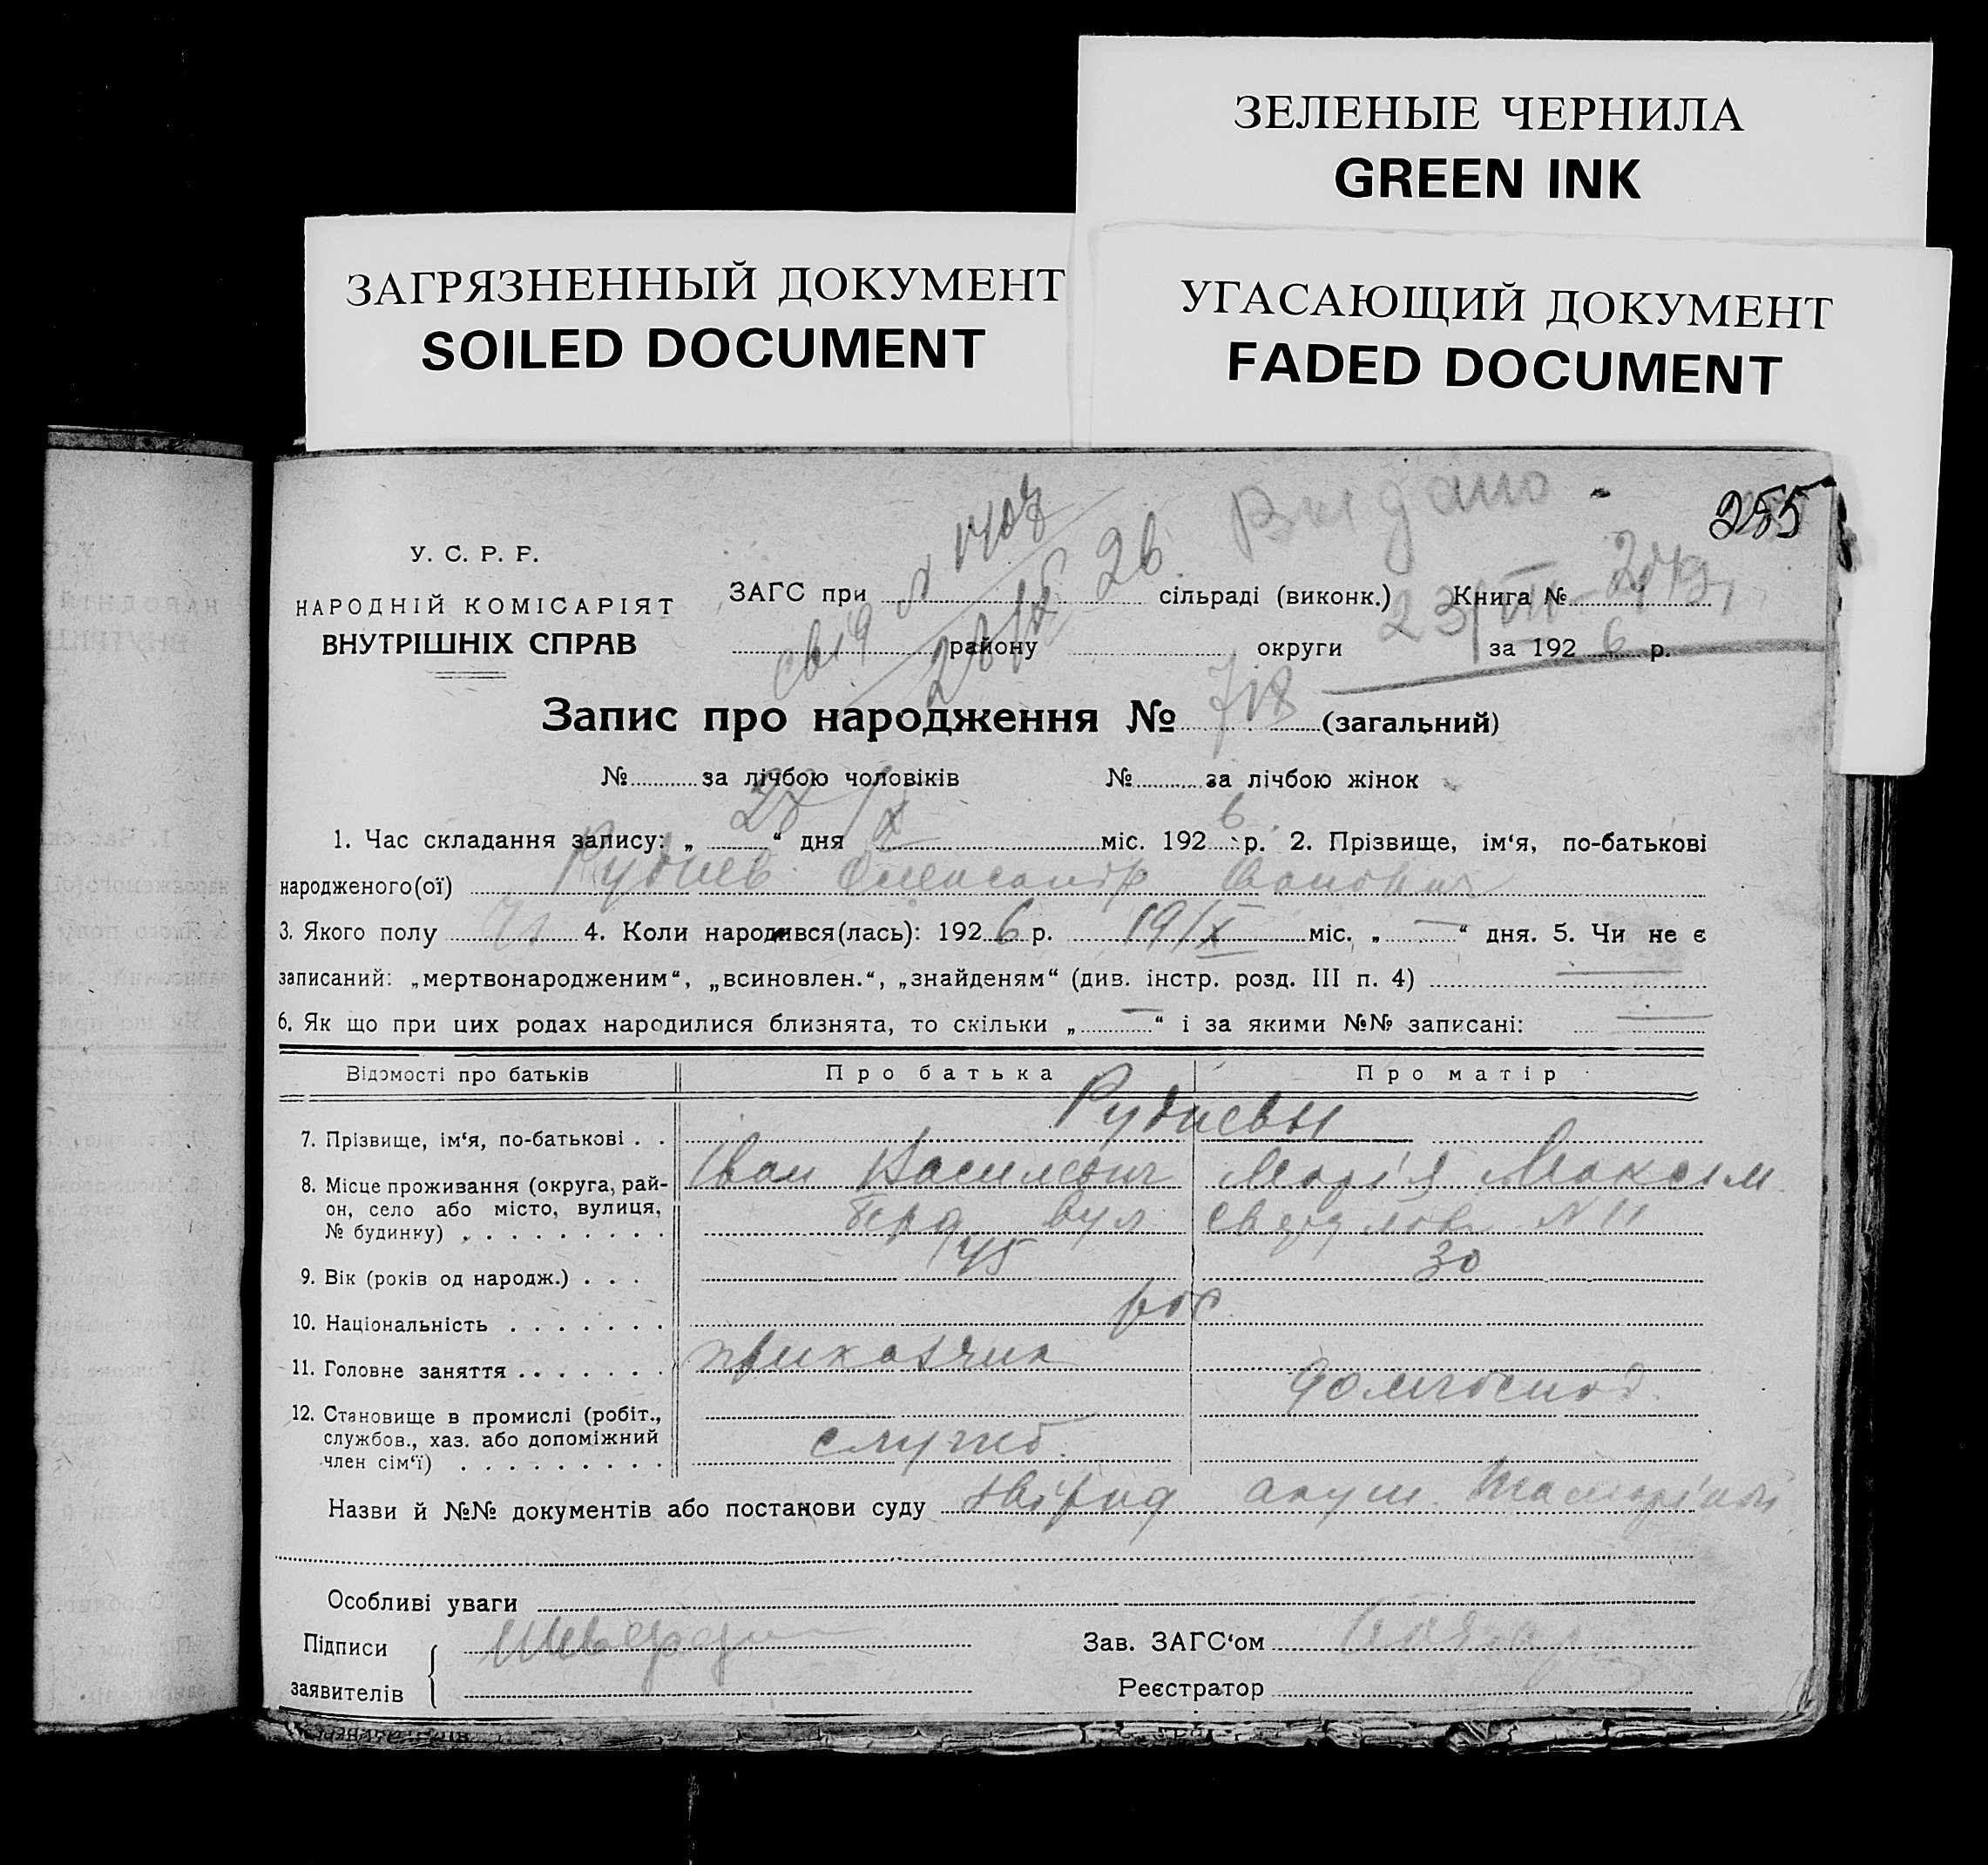 ЗЕЛЕНЫЕ ЧЕРНИЛА
GREEN INK
ЗАГРЯЗНЕННЫЙ ДОКУМЕНТ
SOILED DOCUMENT
УГАСАЮЩИЙ ДОКУМЕНТ
FADED DOCUMENT
255
У. С. Р. Р.
НАРОДНІЙ КОМІСАРІЯТ
ВНУТРІШНІХ СПРАВ
ЗАГС при сільраді (виконк.) Книга №
району округи за 1926 р.
Запис про народження № 718 (загальний)
№ за лічбою чоловіків № за лічбою жінок
1. Час складання запису: „ 28 “ дня X міс. 1926 р. 2. Прізвище, ім‘я, по-батькові
народженого(ої) Руднев Олександр Іванович
3. Якого полу Чл 4. Коли народився(лась): 1926 р. 19/X міс. „ — “ дня. 5. Чи не є
записаний: „мертвонародженим“, „всиновлен.“, „знайденям“ (див. інстр. розд. III п. 4) —
6. Як що при цих родах народилися близнята, то скільки „ — “ і за якими №№ записані: —
Відомості про батьків Про батька Про матір
7. Прізвище, ім‘я, по-батькові . . Рудневы
Іван Василевич Марія Максим
8. Місце проживання (округа, рай-
он, село або місто, вулиця,
№ будинку) . . . . . . . . . Берд вул Свердлова N 11
9. Вік (років од народж.) . . . 45 30
10. Національність . . . . . . . рос.
11. Головне заняття . . . . . . . приказчик домгоспод.
12. Становище в промислі (робіт.,
службов., хаз. або допоміжний
член сім‘ї) . . . . . . . . . служб.
Назви й №№ документів або постанови суду акуш.
Особливі уваги
Підписи
заявителів
Зав. ЗАГС‘ом
Реєстратор